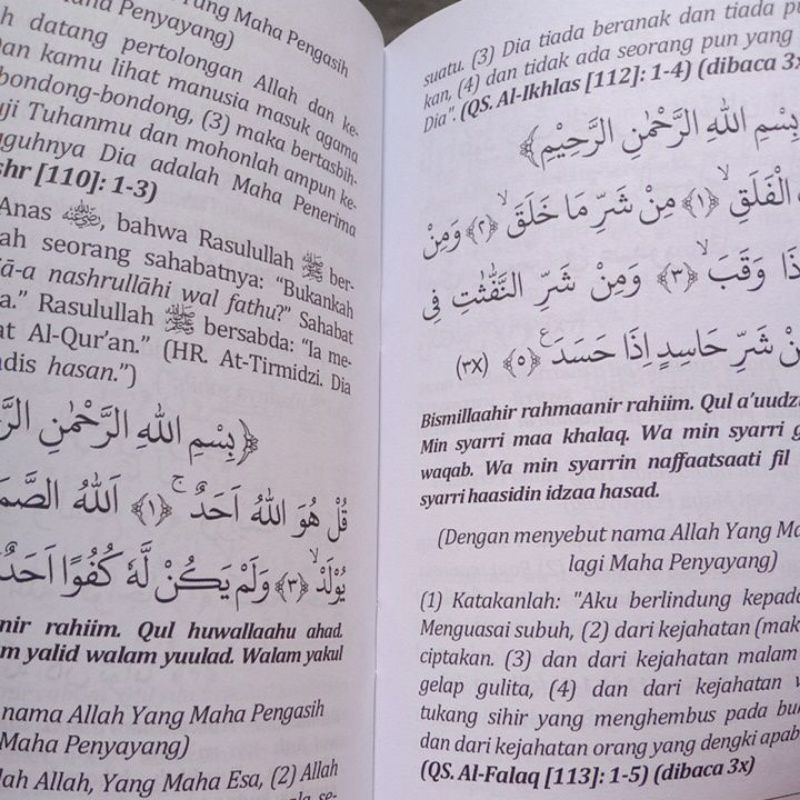 Yang Maha Pengasih
Maha Penyayang)
datang pertolongan Allah dan ke-
kamu lihat manusia masuk agama
bondong-bondong, (3) maka bertasbih-
Tuhanmu dan mohonlah ampun ke-
Dia adalah Maha Penerima
[110]: 1-3)
Anas ﷺ, bahwa Rasulullah ﷺ ber-
seorang sahabatnya: “Bukankah
nashrullāhi wal fathu?” Sahabat
Rasulullah ﷺ bersabda: “Ia me-
Al-Qur’an.” (HR. At-Tirmidzi. Dia
hasan.”)
﴿بِسْمِ اللهِ الرَّحْمٰنِ
قُلْ هُوَ اللهُ اَحَدٌ ۚ ﴿١﴾ اَللهُ
يُوْلَدْ ۙ ﴿٣﴾ وَلَمْ يَكُنْ لَّهٗ كُفُوًا اَحَدٌ
rahiim. Qul huwallaahu ahad.
yalid walam yuulad. Walam yakul
nama Allah Yang Maha Pengasih
Maha Penyayang)
Allah, Yang Maha Esa, (2) Allah
se-
suatu. (3) Dia tiada beranak dan tiada
kan, (4) dan tidak ada seorang pun yang
Dia”. (QS. Al-Ikhlas [112]: 1-4) (dibaca 3x
بِسْمِ اللهِ الرَّحْمٰنِ الرَّحِيْمِ﴾
الْفَلَقِ ۙ ﴿١﴾ مِنْ شَرِّ مَا خَلَقَ ۙ ﴿٢﴾ وَمِنْ
وَقَبَ ۙ ﴿٣﴾ وَمِنْ شَرِّ النَّفّٰثٰتِ فِى
شَرِّ حَاسِدٍ اِذَا حَسَدَ ࣖ ﴿٥﴾ (٣X)
Bismillaahir rahmaanir rahiim. Qul a’uudzu
Min syarri maa khalaq. Wa min syarri
waqab. Wa min syarrin naffaatsaati fil
syarri haasidin idzaa hasad.
(Dengan menyebut nama Allah Yang
lagi Maha Penyayang)
(1) Katakanlah: "Aku berlindung kepada
Menguasai subuh, (2) dari kejahatan
ciptakan. (3) dan dari kejahatan malam
gelap gulita, (4) dan dari kejahatan
tukang sihir yang menghembus pada
dan dari kejahatan orang yang dengki
(QS. Al-Falaq [113]: 1-5) (dibaca 3x)